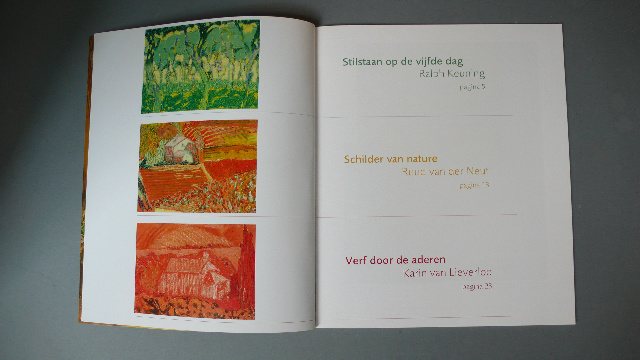 Stilstaan op de vijfde dag
Ralph Keuning
pagina 5
Schilder van nature
Ruud van der Neut
pagina 13
Verf door de aderen
Karin van Lieverloo
pagina 23